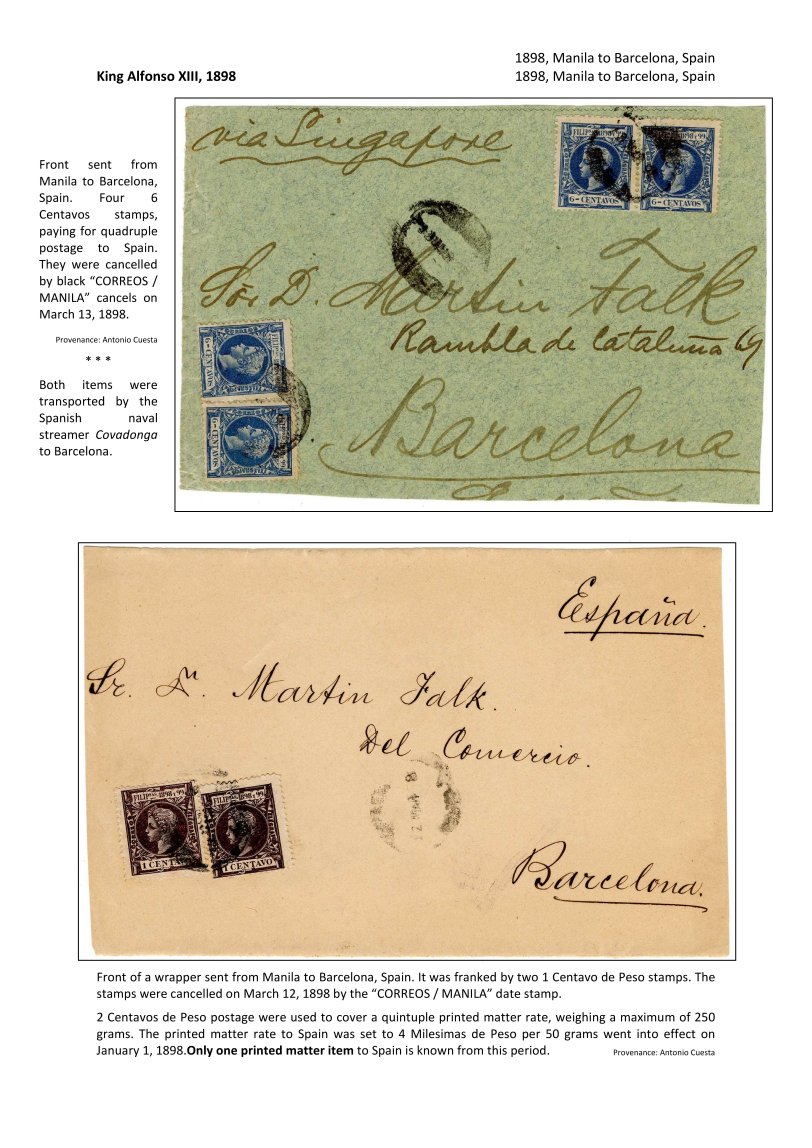 1898, Manila to Barcelona, Spain
King Alfonso XIII, 1898
1898, Manila to Barcelona, Spain
Front sent from
Manila to Barcelona,
Spain. Four 6
Centavos stamps,
paying for quadruple
postage to Spain.
They were cancelled
by black “CORREOS /
MANILA” cancels on
March 13, 1898.
Provenance: Antonio Cuesta
* * *
Both items were
transported by the
Spanish naval
streamer Covadonga
to Barcelona.
via Singapore
FILIPnas 1898 y 99
1898 y 99
6=CENTAVOS
6=CENTAVOS
Sor. D. Martin Falk
Rambla de Cataluña 69
Barcelona
6=CENTAVOS
FILIP
6=CENTAVOS
España.
Sr. Dn. Martin Falk.
Del Comercio.
Barcelona.
FILIPnas 1898 y 99
FILIPnas 1898 y 99
1 CENT
1 CENTAVO
Front of a wrapper sent from Manila to Barcelona, Spain. It was franked by two 1 Centavo de Peso stamps. The
stamps were cancelled on March 12, 1898 by the “CORREOS / MANILA” date stamp.
2 Centavos de Peso postage were used to cover a quintuple printed matter rate, weighing a maximum of 250
grams. The printed matter rate to Spain was set to 4 Milesimas de Peso per 50 grams went into effect on
January 1, 1898.Only one printed matter item to Spain is known from this period.
Provenance: Antonio Cuesta